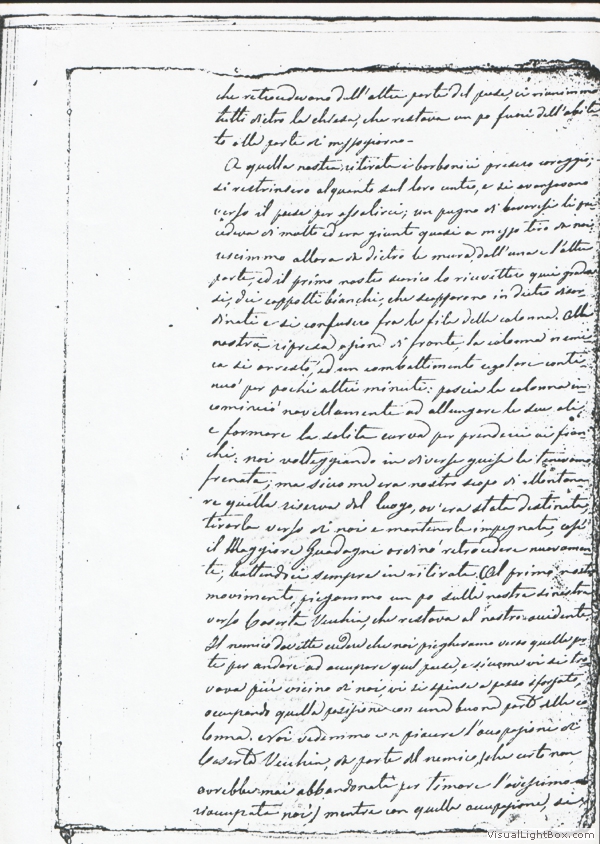 che retrocedevano dall'altra parte del paese, ci riunimmo
tutti dietro la chiesa, che restava un po fuori dell'abita
to alla parte di mezzogiorno.
A quella nostra ritirata i borbonici presero coraggio;
si restrinsero alquanto sul loro centro, e si avanzavano
verso il paese per assalirci; un pugno di bavaresi li pre
cedeva di molto ed era giunto quasi a mezzo tiro da noi,
uscimmo allora da dietro le mura, dall'una e l'altra
parte, ed il primo nostro scarico lo ricevettero quei
si, dai cappotti bianchi, che scapparono in dietro disor
dinati e si confusero fra le file della colonna. Alla
nostra ripresa azione di fronte, la colonna nemi
ca si arrestò, ed un combattimento regolare conti
nuò per pochi altri minuti: poscia la colonna in
cominciò novellamente ad allungare le sue ali
e formare la solita curva per prenderci ai fian
chi; noi volteggiando in diverse guise la tenevamo
frenata; ma siccome era nostro scopo di allontana
re quella riserva dal luogo, ov'era stata destinata,
tirarla verso di noi e mantenerla impegnata, così
il Maggiore Guadagni ordinò retrocedere nuovamen
te, battendoci sempre in ritirata. Al primo nostro
movimento, piegammo un po sulla nostra sinistra
verso Caserta Vecchia, che restava al nostro occidente.
Il nemico dovette credere che noi piegheramo verso quella par
te per andare ad occupare quel paese, e siccome vi si tro
vava più vicino di noi, vi si spinse a passo sforzato,
occupando quella posizione con una buona parte della co
lonna. Noi vedemmo con piacere l'occupazione di
Caserta Vecchia, da parte del nemico, (che certo non
avrebbe mai abbandonata per timore l'avessimo
rioccupata noi) mentre con quella occupazione, si
VisualLightBox.com